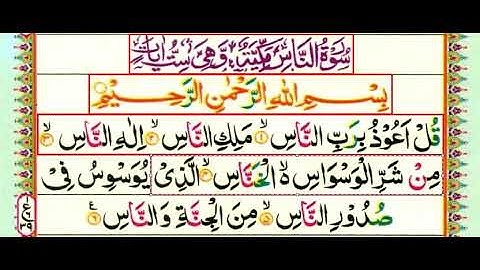 سُوْرَةُ النَّاسِ مَكِّيَّةٌ وَّهِيَ سِتُّ اٰيَاتٍ
بِسْمِ اللهِ الرَّحْمٰنِ الرَّحِيْمِ
قُلْ اَعُوْذُ بِرَبِّ النَّاسِ ۙ﴿۱﴾ مَلِكِ النَّاسِ ۙ﴿۲﴾ اِلٰهِ النَّاسِ ۙ﴿۳﴾
مِنْ شَرِّ الْوَسْوَاسِ ۙ۬ الْخَنَّاسِ ۪ۙ﴿۴﴾ الَّذِيْ يُوَسْوِسُ فِيْ
صُدُوْرِ النَّاسِ ۙ﴿۵﴾ مِنَ الْجِنَّةِ وَ النَّاسِ ﴿۶﴾